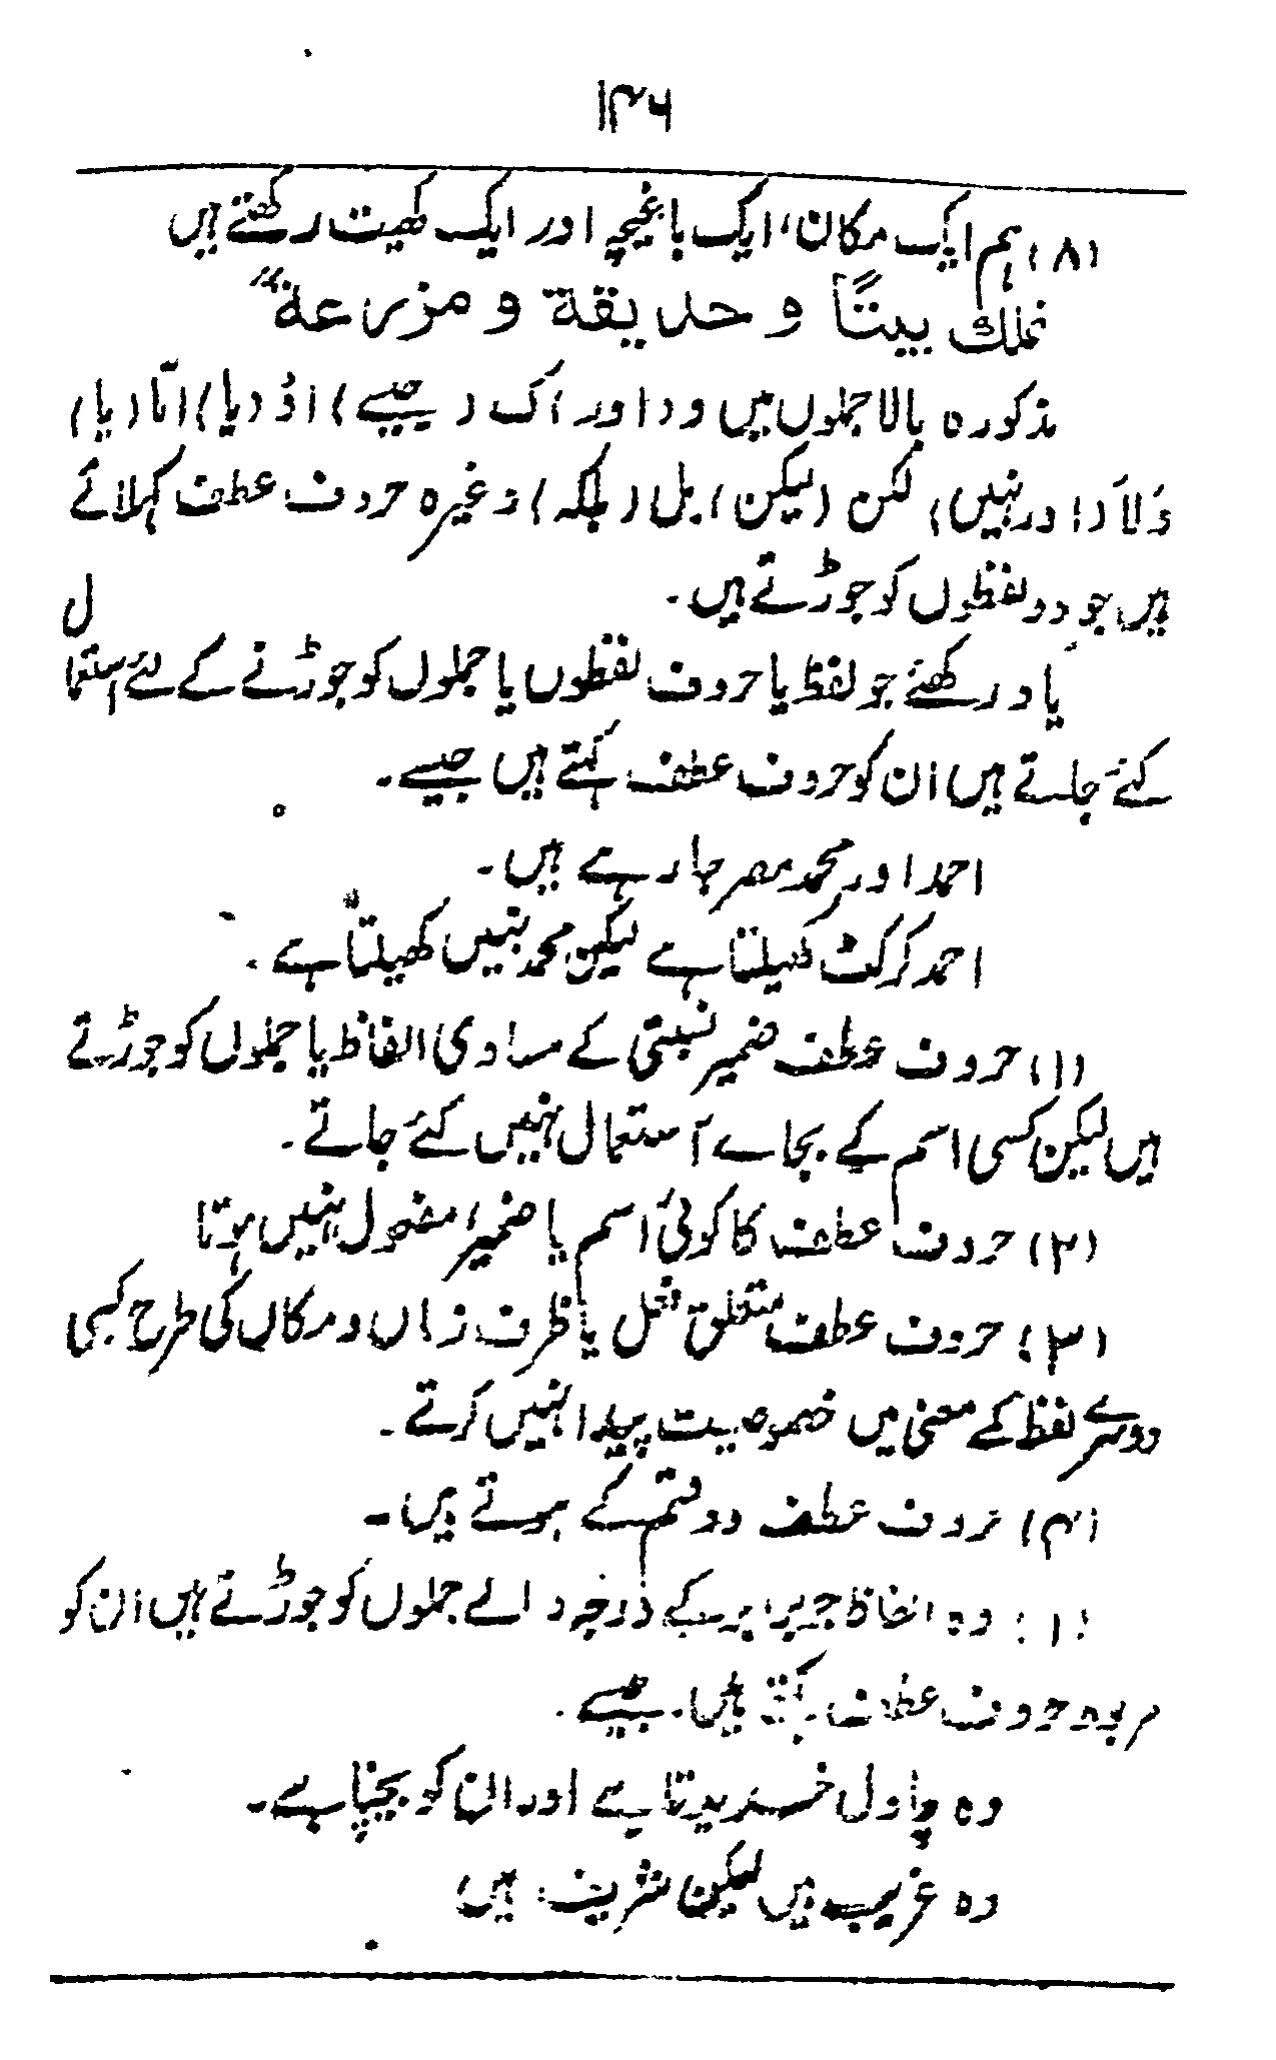 ۱۴۶
(۸) ہم ایک مکان، ایک باغیچہ اور ایک کھیت رکھتے ہیں
نملك بيتًا و حديقة و مزرعة
مذکورہ بالا جملوں میں و (اور) ک (جیسے) اوْ (یا) امّا (یا)
وَلاَ (اور نہیں) لکن (لیکن) بل (بلکہ) وغیرہ حروف عطف کہلاتے
ہیں جو دو لفظوں کو جوڑتے ہیں۔
یاد رکھئے جو لفظ یا حروف لفظوں یا جملوں کو جوڑنے کے لئے استعمال
کئے جاتے ہیں ان کو حروف عطف کہتے ہیں جیسے۔
احمد اور محمد مصر جا رہے ہیں۔
احمد کرکٹ کھیلتا ہے لیکن محمد نہیں کھیلتا ہے۔
(۱) حروف عطف ضمیر نسبتی کے مساوی الفاظ یا جملوں کو جوڑتے
ہیں لیکن کسی اسم کے بجاے استعمال نہیں کئے جاتے۔
(۲) حروف عطف کا کوئی اسم یا ضمیر، مفعول نہیں ہوتا
(۳) حروف عطف متعلق فعل یا ظرف زماں و مکاں کی طرح کسی
دوسرے لفظ کے معنی میں خصوصیت پیدا نہیں کرتے۔
(۴) حروف عطف دو قسم کے ہوتے ہیں۔
(۱) وہ الفاظ جو برابر کے درجہ والے جملوں کو جوڑتے ہیں ان کو
حروف عطف کہتے ہیں۔ جیسے۔
وہ چاول خریدتا ہے اور ان کو بیچتا ہے۔
وہ غریب ہیں لیکن شریف ہیں